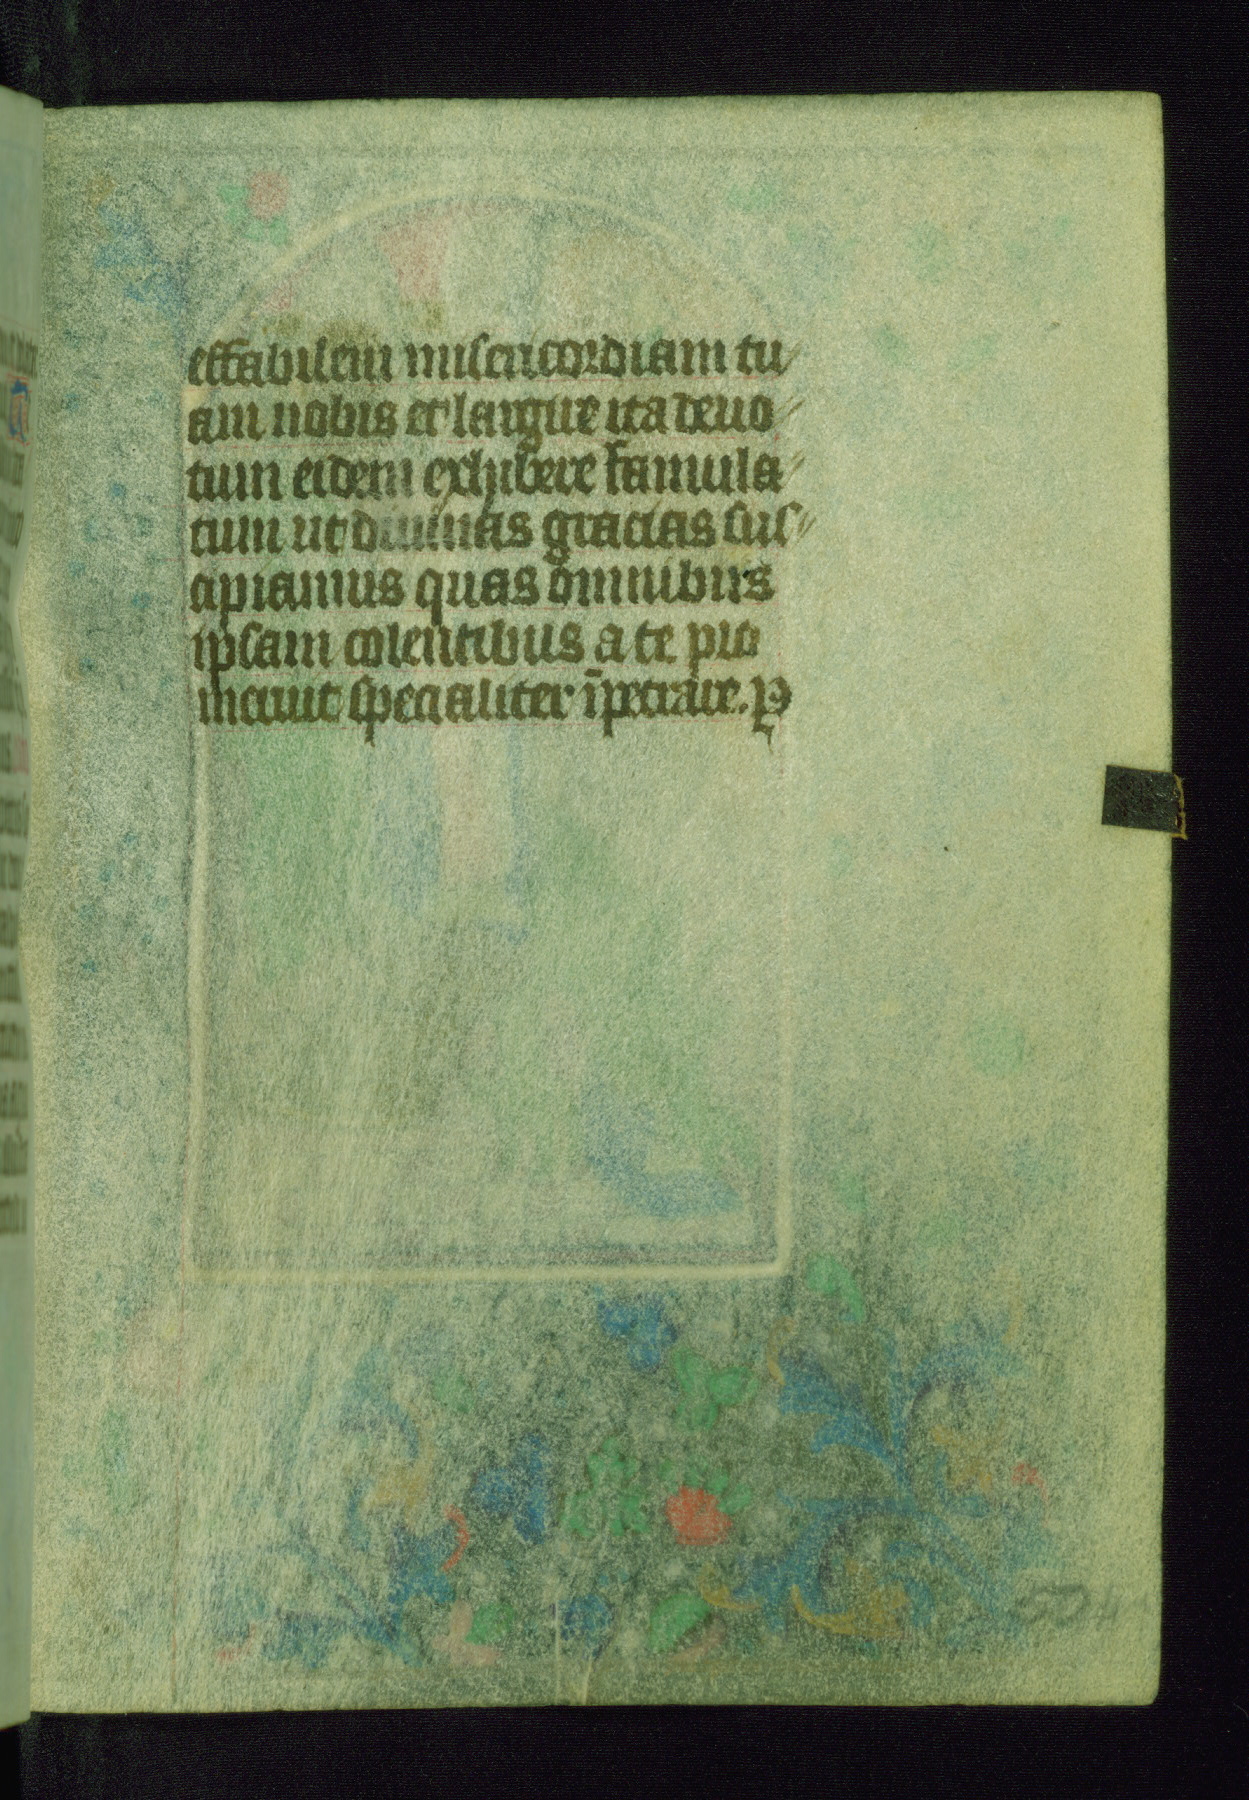 effabilem misericordiam tu
am nobis et largire ita deuo
tum eidem exhibere famula
tum ut diuinas gracias sus
cipiamus quas omnibus
ipsam colentibus a te pro
meruit specialiter īpetrare. P